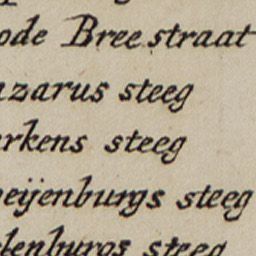 ode Bree straat
azarus steeg
rkens steeg
eijenburgs steeg
lenburgs steeg